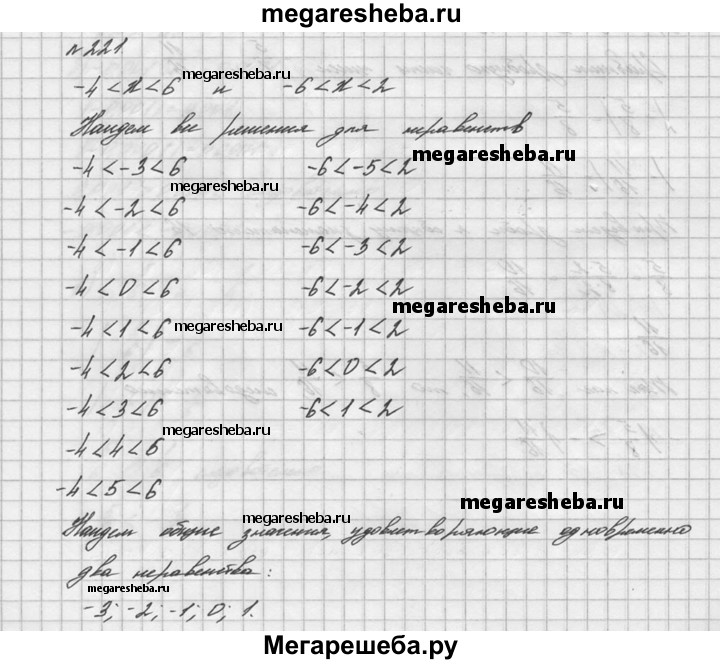 megaresheba.ru
№ 221
-4 < x < 6 и -6 < x < 2
megaresheba.ru
Найдем все решения для неравенств
megaresheba.ru
-4 < -3 < 6 -6 < -5 < 2
megaresheba.ru
-4 < -2 < 6 -6 < -4 < 2
-4 < -1 < 6 -6 < -3 < 2
-4 < 0 < 6 -6 < -2 < 2
megaresheba.ru
-4 < 1 < 6 -6 < -1 < 2
megaresheba.ru
-4 < 2 < 6 -6 < 0 < 2
-4 < 3 < 6 -6 < 1 < 2
megaresheba.ru
-4 < 4 < 6
-4 < 5 < 6
megaresheba.ru
megaresheba.ru
Найдем общие значения, удовлетворяющие одновременно
два неравенства:
megaresheba.ru
-3; -2; -1; 0; 1.
Мегарешеба.ру